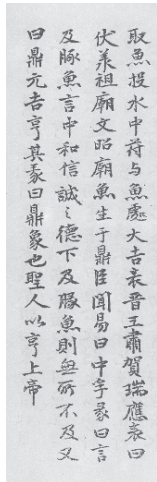 取魚投水中符与魚處大吉表晋王肅賀瑞應表曰
伏羲祖廟文昭廟魚生于鼎臣聞易曰中孚彖曰言
及豚魚言中和信誠之德下及豚魚則無所不及又
曰鼎元吉亨其彖曰鼎象也聖人以亨上帝